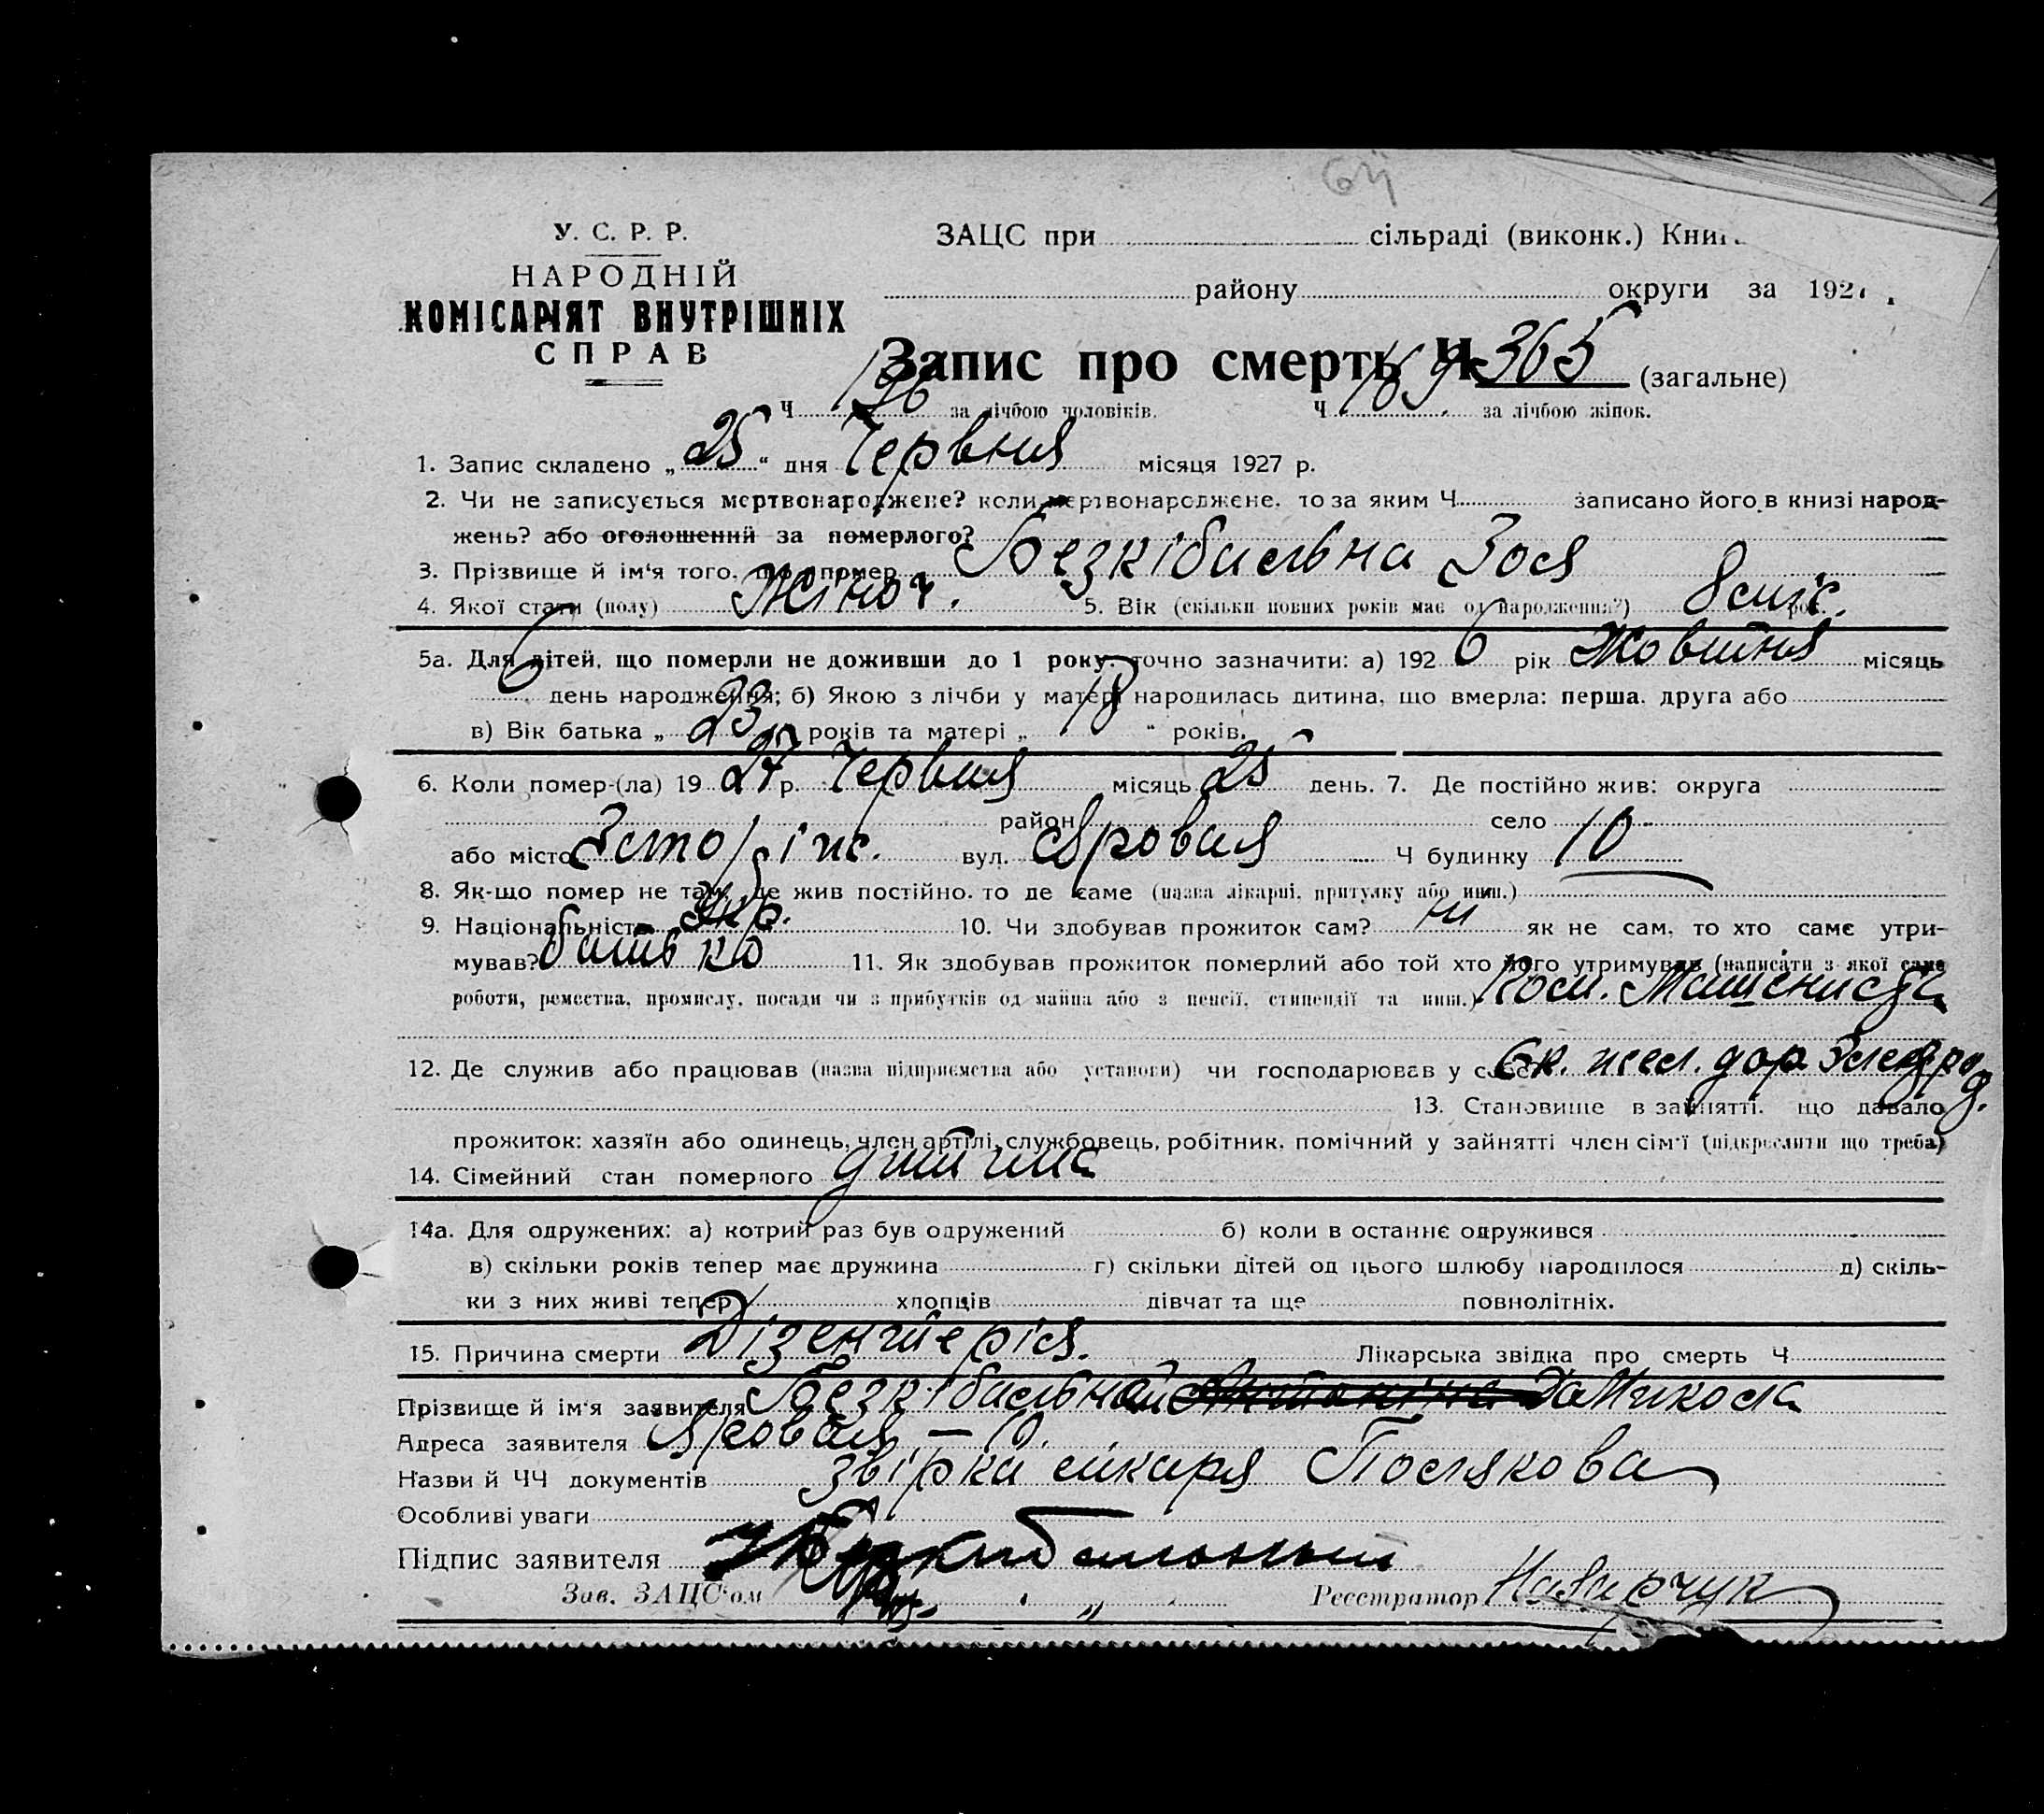 64
У. С. Р. Р.
НАРОДНІЙ
КОМІСАРІЯТ ВНУТРІШНІХ
СПРАВ
ЗАЦС при сільраді (виконк.) Книг
району округи за 192
Запис про смерть Ч 365 (загальне)
Ч 196 за лічбою чоловіків. Ч 169 за лічбою жінок.
1. Запис складено „25“ дня Червня місяця 1927 р.
2. Чи не записується мертвонароджене? коли мертвонароджене, то за яким Ч записано його в книзі народ-
жень? або оголошений за померлого?
3. Прізвище й ім'я того, що помер Безкібальна Зося
4. Якої стати (полу) Жіноч. 5. Вік (скільки повних років має од народження?) 8 міс. рок.
5а. Для дітей, що померли не доживши до 1 року: точно зазначити: а) 1926 рік Жовтня місяць
6 день народження; б) Якою з лічби у матері народилась дитина, що вмерла: перша, друга або
в) Вік батька „23“ років та матері „18“ років.
6. Коли помер-(ла) 1927 р. Червня місяць 25 день. 7. Де постійно жив: округа
район село
або місто вул. Яровая Ч будинку 10
8. Як-що помер не там, де жив постійно, то де саме (назва лікарні, притулку або инш.)
9. Національність Укр. 10. Чи здобував прожиток сам? ні як не сам, то хто саме утри-
мував? батько 11. Як здобував прожиток померлий або той хто його утримував (написати з якої саме
роботи, ремества, промислу, посади чи з прибутків од майна або з пенсії, стипендії та инш.) Пом. Машениста
12. Де служив або працював (назва підприємства або установи) чи господарював у себе Ек. жел. дор
13. Становище в зайнятті, що давало
прожиток: хазяїн або одинець, член артілі, службовець, робітник, помічний у зайнятті член сім'ї (підкреслити що треба)
14. Сімейний стан померлого дитина
14а. Для одружених: а) котрий раз був одружений б) коли в останнє одружився
в) скільки років тепер має дружина г) скільки дітей од цього шлюбу народилося д) скіль-
ки з них живі тепер хлопців дівчат та ще повнолітніх.
15. Причина смерти Дізентерія. Лікарська звідка про смерть Ч
Прізвище й ім'я заявителя Безкібальной Микола
Адреса заявителя Яровая – 10.
Назви й ЧЧ документів звірка лікаря Полякова
Особливі уваги
Підпис заявителя
Зав. ЗАЦС'ом Реєстратор Назарчук